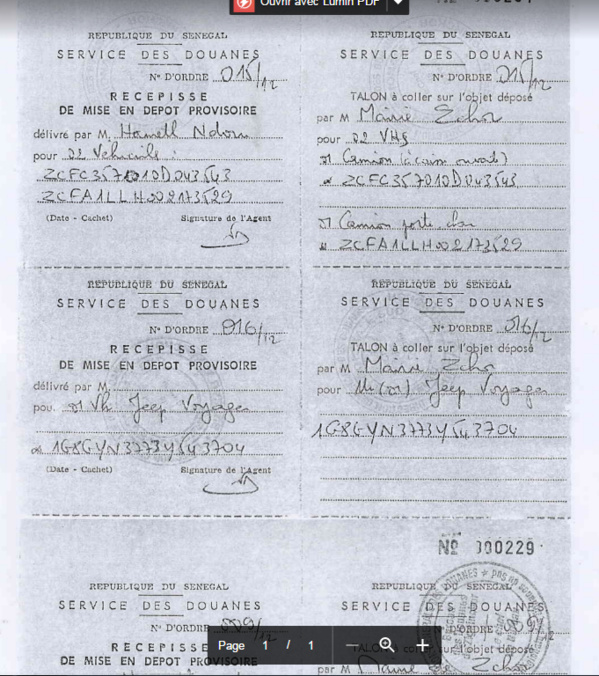 Ouvrir avec Lumin PDF
REPUBLIQUE DU SENEGAL
SERVICE DES DOUANES
N° D'ORDRE 015/12
RECEPISSE
DE MISE EN DEPOT PROVISOIRE
délivré par M.
pour 02 Vehicules :
ZCFC357010D043543
ZCFA1LLH002173529
(Date - Cachet) Signature de l'Agent
REPUBLIQUE DU SENEGAL
SERVICE DES DOUANES
N° D'ORDRE 015/12
TALON à coller sur l'objet déposé
par M Mairie
pour 02 VHS
01 Camion
ZCFC357010D043543
01 Camion porte char
ZCFA1LLH002173529
REPUBLIQUE DU SENEGAL
SERVICE DES DOUANES
N° D'ORDRE 016/12
RECEPISSE
DE MISE EN DEPOT PROVISOIRE
délivré par M.
pour 01 Vh Jeep Voyager
1G8GYN3773Y543704
(Date - Cachet) Signature de l'Agent
REPUBLIQUE DU SENEGAL
SERVICE DES DOUANES
N° D'ORDRE 016/12
TALON à coller sur l'objet déposé
par M Mairie
pour Jeep Voyager
1G8GYN3773Y543704
N° 000229
REPUBLIQUE DU SENEGAL
SERVICE DES DOUANES
N° D'ORDRE
RECEPISSE
DE MISE EN DEPOT PROVISOIRE
REPUBLIQUE DU SENEGAL
SERVICE DES DOUANES
D'ORDRE
TALON à coller sur l'objet déposé
par M Mairie de
Page 1 / 1